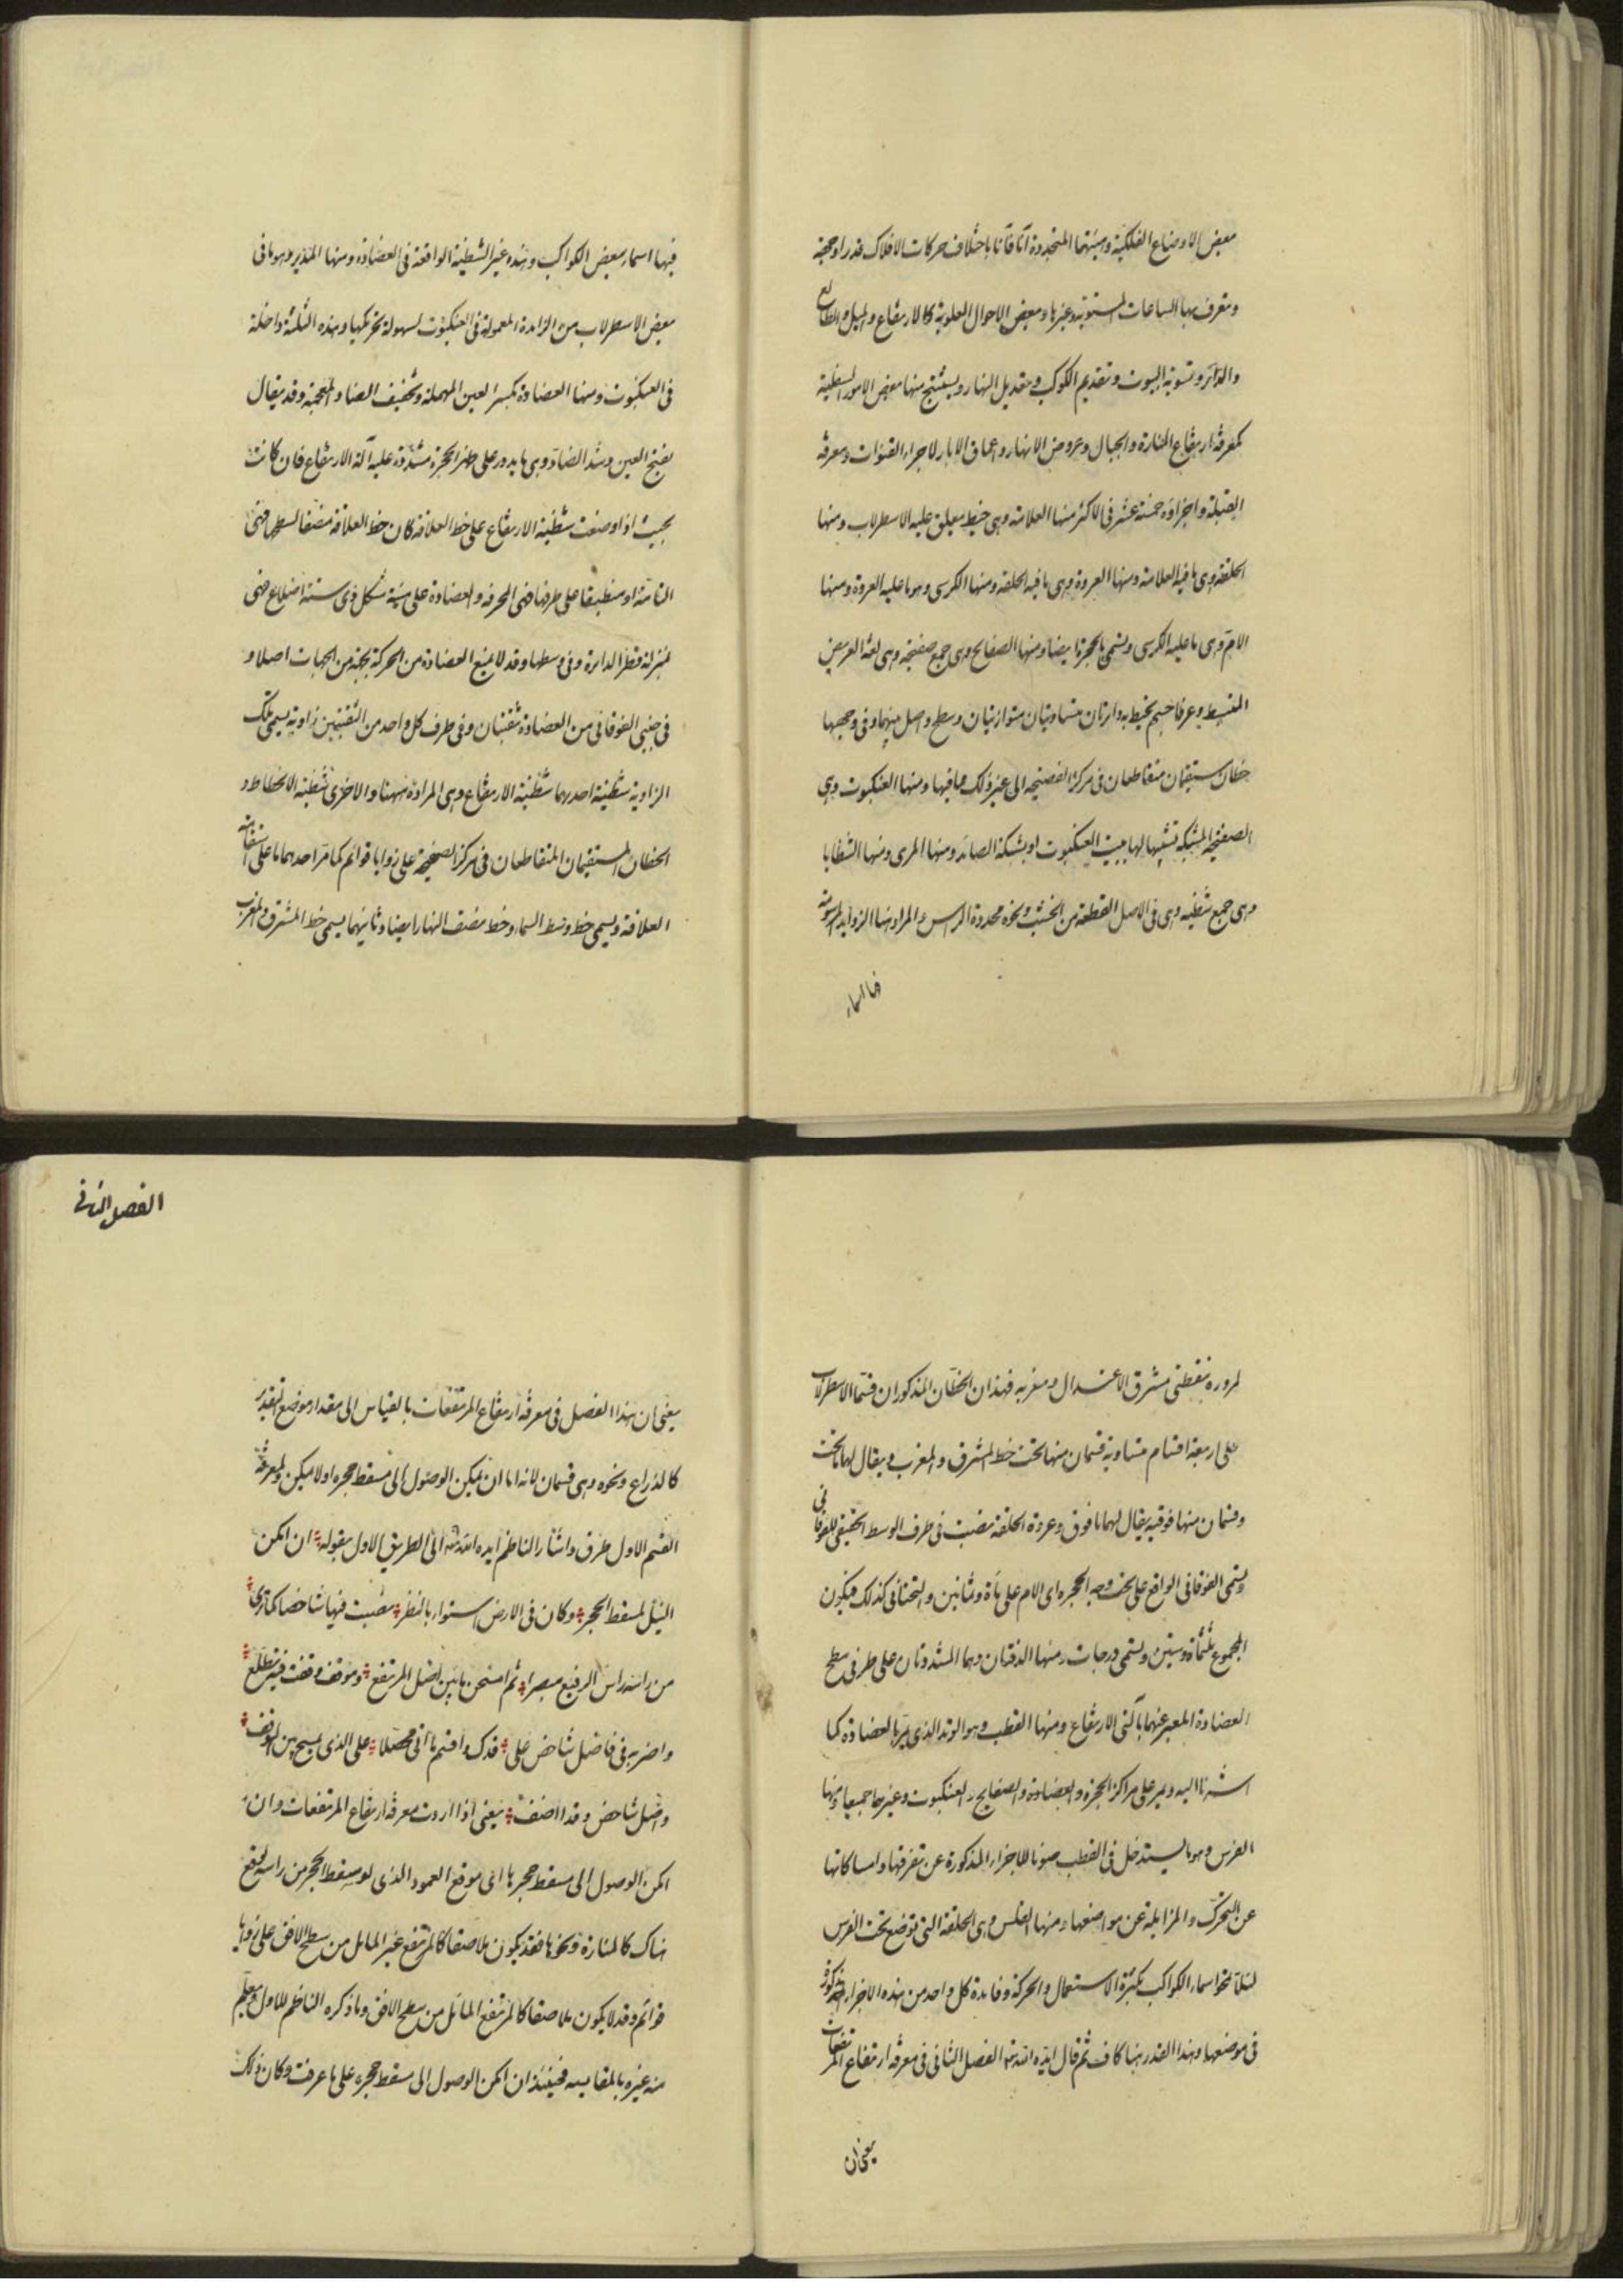 بعض الاوضاع الفلكية وهيئتها المتجددة آنا فآنا باختلاف حركات الافلاك قدرا وجهة
وتعرف بها الساعات المستوية وغيرها وبعض الاحوال العلوية كالارتفاع والميل والطالع
والدائر وتسوية البيوت وتقديم الكوكب وتعديل النهار ويستنتج منها بعض الامور السفلية
كمعرفة ارتفاع المنارة والجبال وعروض الانهار واعماق الابار لاجراء القنوات ومعرفة
القبلة واجزاؤه خمسة عشر فى الاكثر منها العلاقة وهى خيط يعلق عليه الاسطرلاب ومنها
الحلقة وهى ما فيه العلاقة ومنها العروة وهى ما فيه الحلقة ومنها الكرسى وهو ما عليه العروة ومنها
الام وهى ما عليه الكرسى ويسمى بالحجرة ايضا ومنها الصفايح وهى جمع صفيحة وهى لغة العريض
المنبسط وعرفا جسم يحيط به دائرتان متساويتان متوازيتان وسطح واصل بينهما وفى وجهيها
خطان مستقيمان متقاطعان فى مركز الصفيحة الى غير ذلك مما فيها ومنها العنكبوت وهى
الصفيحة المشبكة تشبيها لها ببيت العنكبوت او بشبكة الصائد ومنها المرى ومنها الشظايا
وهى جمع شظية وهى فى الاصل القطعة من الخشب ونحوه محددة الراس والمراد منها الزوايد المرسومة
فيها اسماء
فيها اسماء بعض الكواكب وهذه غير الشظية الواقعة فى العضادة ومنها المدير وهو ما فى
بعض الاسطرلاب من الزايدة المعمولة فى العنكبوت لسهولة تحريكها وهذه الثلثة داخلة
فى العنكبوت ومنها العضادة بكسر العين المهملة وتخفيف الضاد المعجمة وقد يقال
بفتح العين وشد الضاد وهى ما يدور على ظهر الحجرة مشدودة عليه آلة الارتفاع فان كانت
بحيث اذا وضعت شظية الارتفاع على خط العلاقة كان خط العلاقة منصفا لسطحها فهى
التامة او منطبقا على طرفها فهى المحرفة والعضادة على هيئة شكل ذى ستة اضلاع فهى
بمنزلة قطر الدايرة وفى وسطها وقد لا يمنع العضادة من الحركة بجهة من الجهات اصلا و
فى جنبى الفوقانى من العضادة ثقبتان وفى طرف كل واحد من الثقبتين زاوية يسمى تلك
الزاوية شظية احديهما شظية الارتفاع وهى المرادة ههنا والاخرى شظية الانحطاط و
الخطان المستقيمان المتقاطعان فى مركز الصفيحة على زوايا قوائم كما مر احدهما ما على استقامة
العلاقة ويسمى خط وسط السماء وخط نصف النهار ايضا وثانيهما يسمى خط المشرق والمغرب
لمروره بنقطتى مشرق الاعتدال ومغربه فهذان الخطان المذكوران قسما الاسطرلاب
على اربعة اقسام متساوية قسمان منها تحت خط المشرق والمغرب ويقال لهما ما تحت
وقسمان منها فوقيه يقال لهما ما فوق وعروة الحلقة نصبت فى طرف الوسط الحقيقى للفوقانى
ويسمى الفوقانى الواقع على وجه الحجرة اى الام على مأة وثمانين والتحتانى كذلك فيكون
المجموع ثلثمأة وستين ويسمى درجات ومنها الدفتان وهما المشدودتان على طرفى سطح
العضادة المعبر عنهما بآلتى الارتفاع ومنها القطب وهو الوتد الذى يمر بالعضادة كما
اشرنا اليه ويمر على مراكز الحجرة والعضادة والصفايح والعنكبوت وغيرها جميعا ومنها
الفرس وهو ما يستدخل فى القطب صونا للاجزاء المذكورة عن تفرقها وامساكا لها
عن التحرك والمزايلة عن مواضعها ومنها الفلس وهى الحلقة التى توضع تحت الفرس
لئلا تمحو اسماء الكواكب بكثرة الاستعمال والحركة وفايدة كل واحد من هذه الاجزاء المذكورة
فى موضعها وهذا القدر هنا كاف ثم قال ايده الله تع الفصل الثانى فى معرفة ارتفاع المرتفعات
يعنى ان
الفصل الثانى
يعنى ان هذا الفصل فى معرفة ارتفاع المرتفعات بالقياس الى مقدار موضع لتقدير
كالذراع ونحوه وهى قسمان لانه اما ان يمكن الوصول الى مسقط حجره او لا يمكن ولمعرفة
القسم الاول طرق واشار الناظم ايده الله تع الى الطريق الاول بقوله ان امكن
النيل لمسقط الحجر وكان فى الارض استواء بالنظر نصبت فيها شاخصا كما ترى
من راسه راس الرفيع مبصرا ثم امسحن ما بين اصل المرتفع وموقف وقفت فيه تطلع
واضربه فى فاضل شاخص على قدك واقسم ما اتى محصلا على الذى يمسح بين الموقف
واصل شاخص وقدا اضف يعنى اذا اردت معرفة ارتفاع المرتفعات وان
امكن الوصول الى مسقط حجرها اى موقع العمود الذى لو سقط الحجر من راسه لوقع
هناك كالمنارة ونحوها فقد يكون ملاصقا كالمرتفع غير المايل من سطح الافق على زوايا
قوائم وقد لا يكون ملاصقا كالمرتفع المائل من سطح الافق وما ذكره الناظم للاول ويعلم
منه غيره بالمقايسه فحينئذ ان امكن الوصول الى مسقط حجره على ما عرفت وكان ذلك